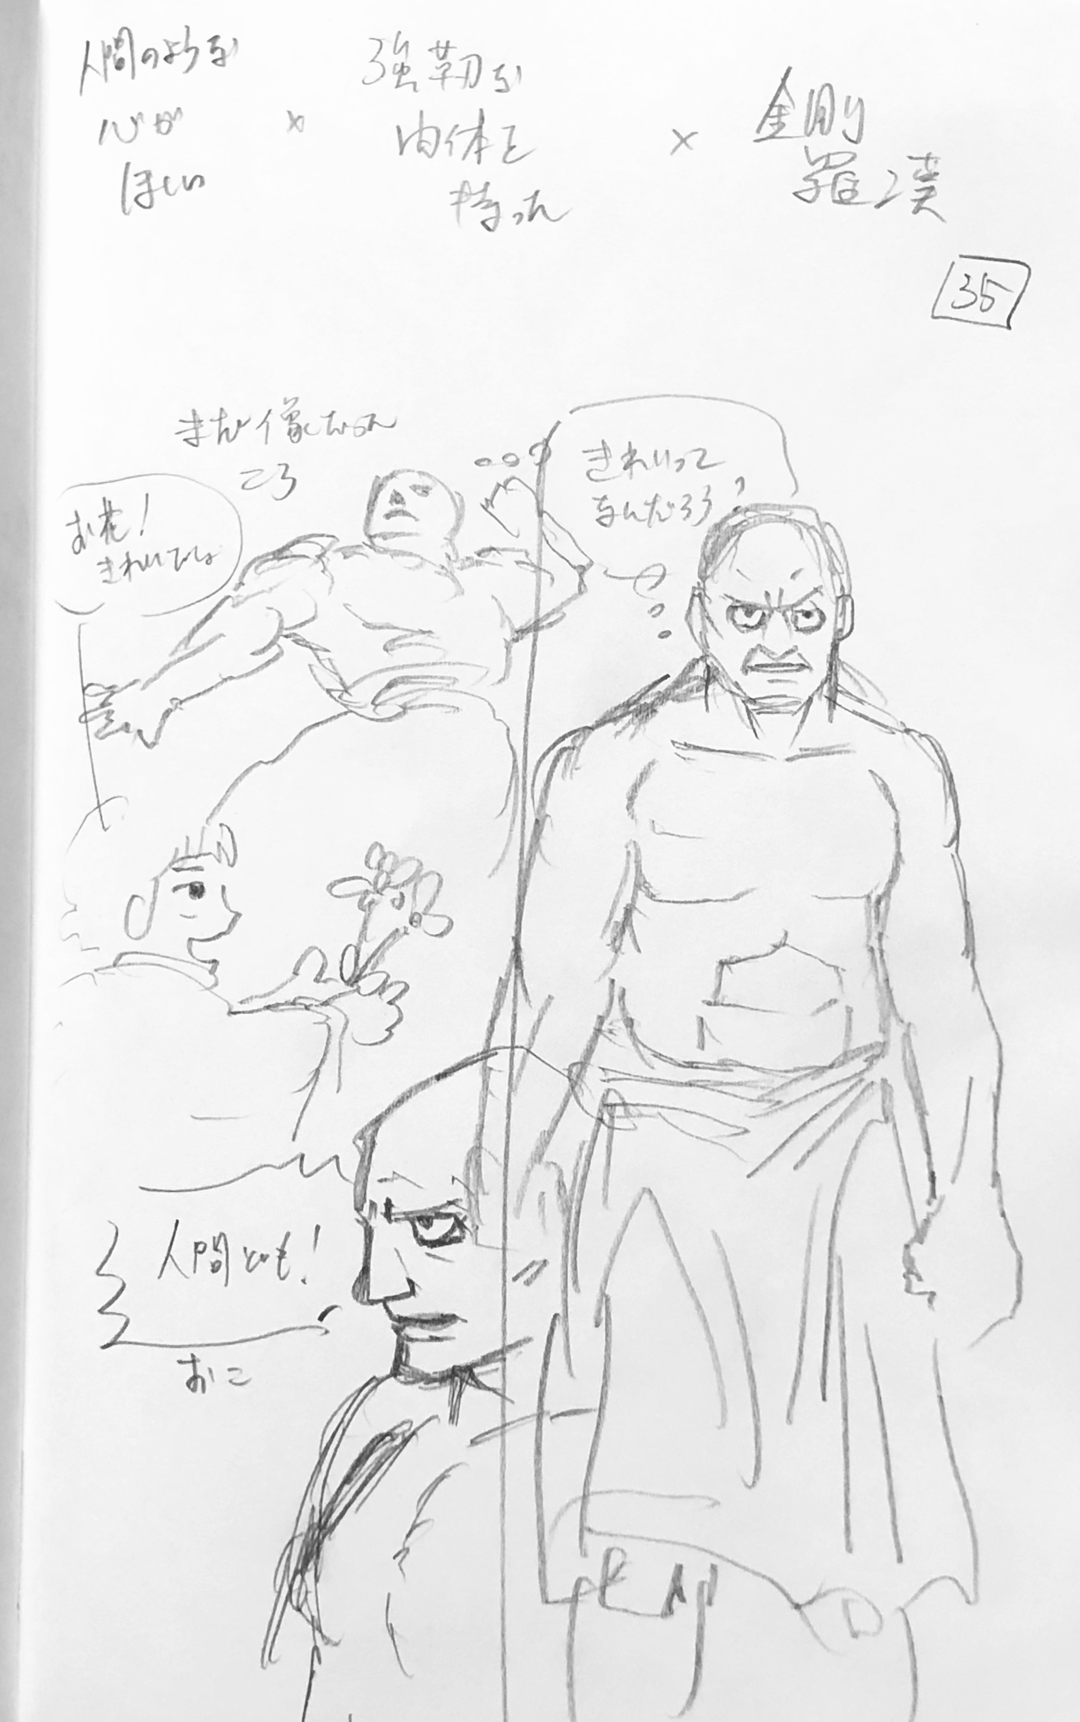 人間のような
心が
ほしい
×
強靭な
肉体を
持った
×
金剛
羅漢
35
まだ像だった
ころ
お花!
きれいでしょ
きれいって
なんだろう?
人間ども!
おこ